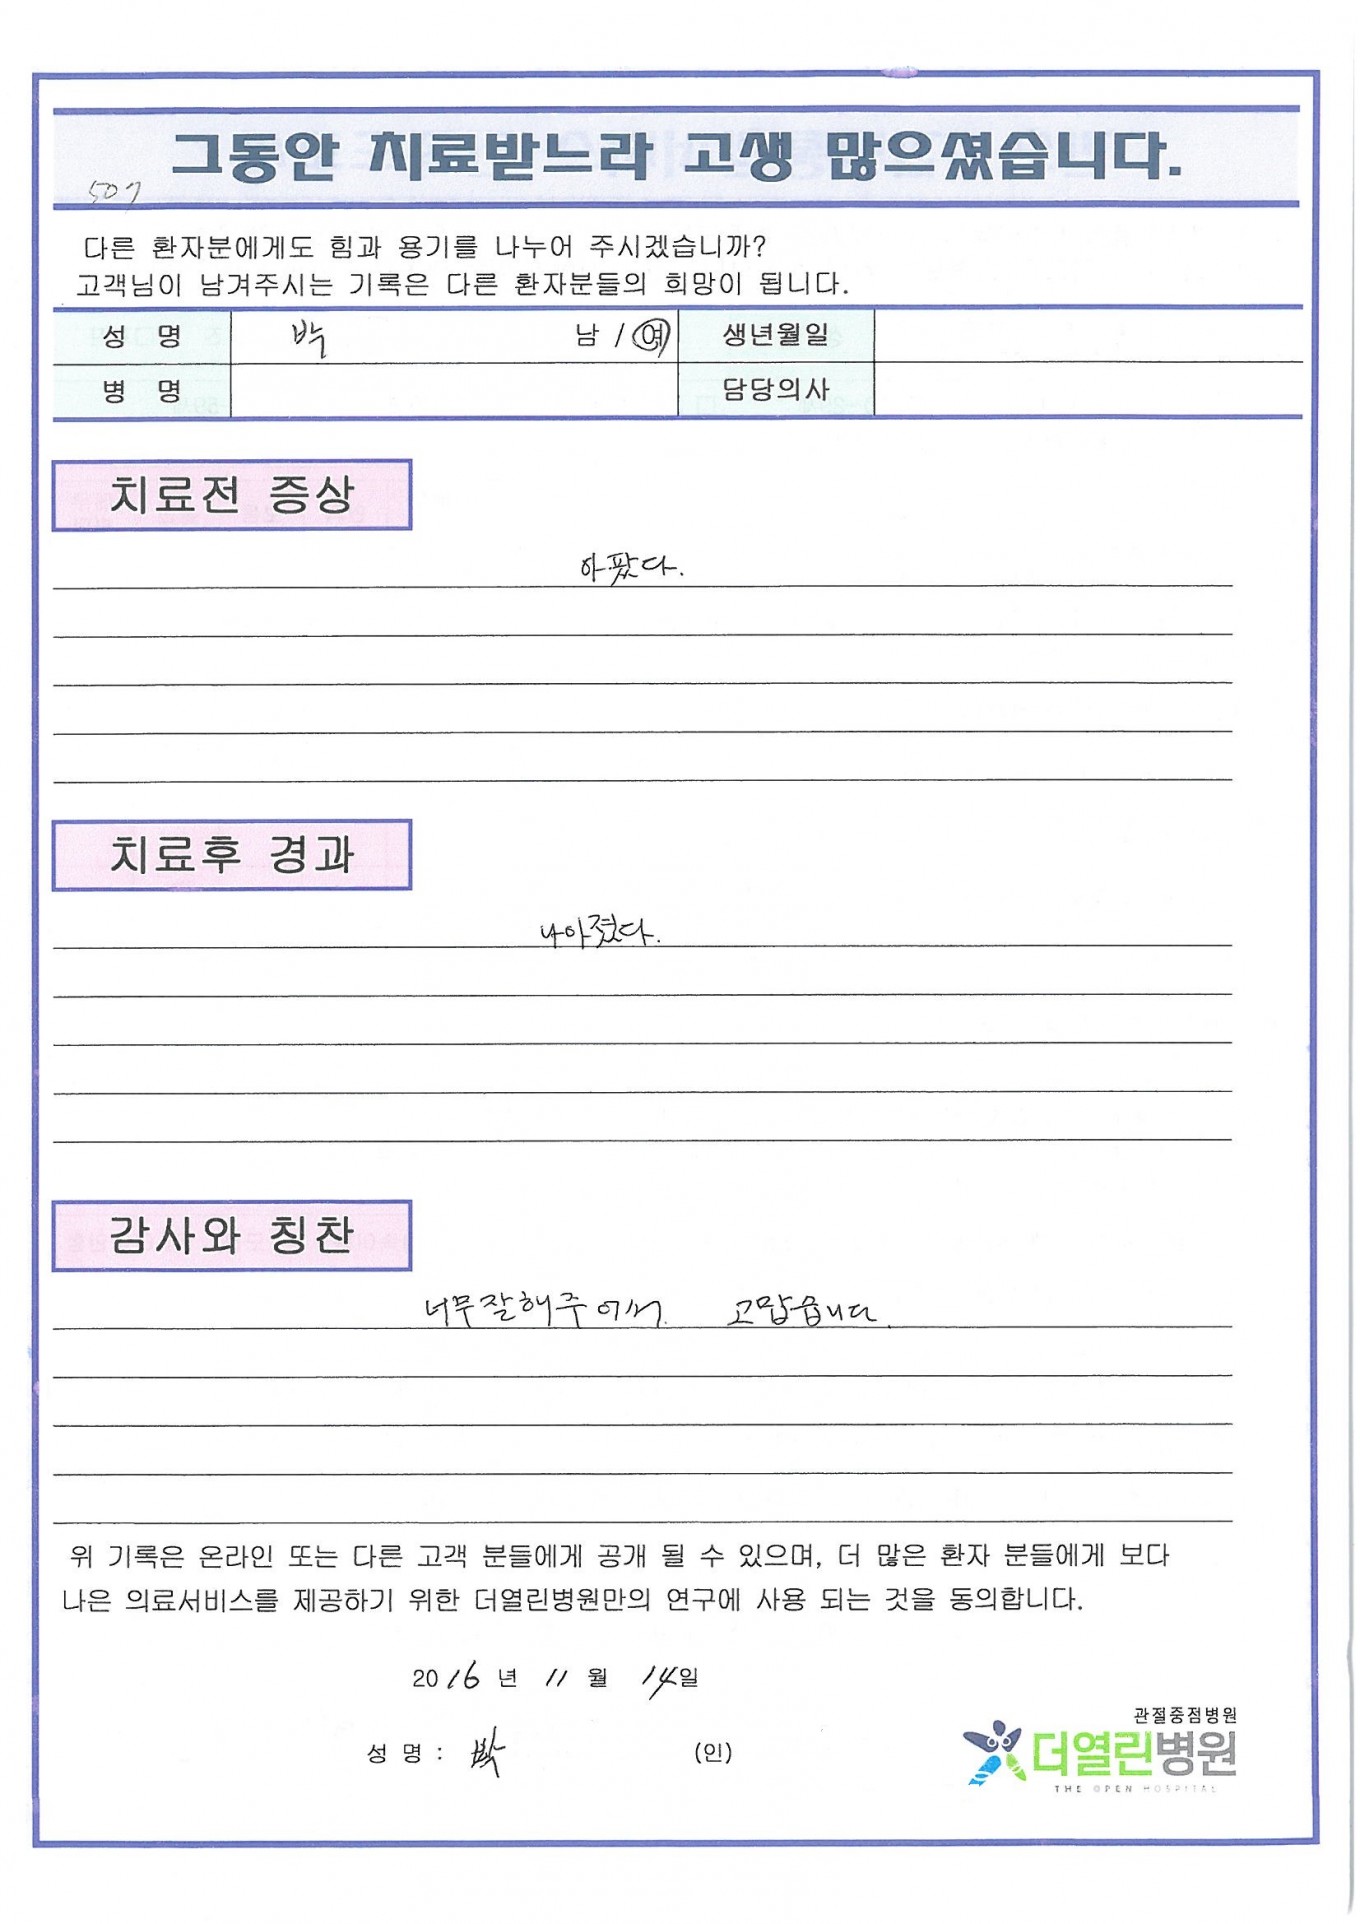 그동안 치료받느라 고생 많으셨습니다.
507
다른 환자분에게도 힘과 용기를 나누어 주시겠습니까?
고객님이 남겨주시는 기록은 다른 환자분들의 희망이 됩니다.
성 명 박 남 / 여 생년월일
병 명 담당의사
치료전 증상
아팠다.
치료후 경과
나아졌다.
감사와 칭찬
너무잘해주어서 고맙습니다.
위 기록은 온라인 또는 다른 고객 분들에게 공개 될 수 있으며, 더 많은 환자 분들에게 보다
나은 의료서비스를 제공하기 위한 더열린병원만의 연구에 사용 되는 것을 동의합니다.
2016 년 11 월 14일
성 명 : 박 (인)
관절중점병원
더열린병원
THE OPEN HOSPITAL